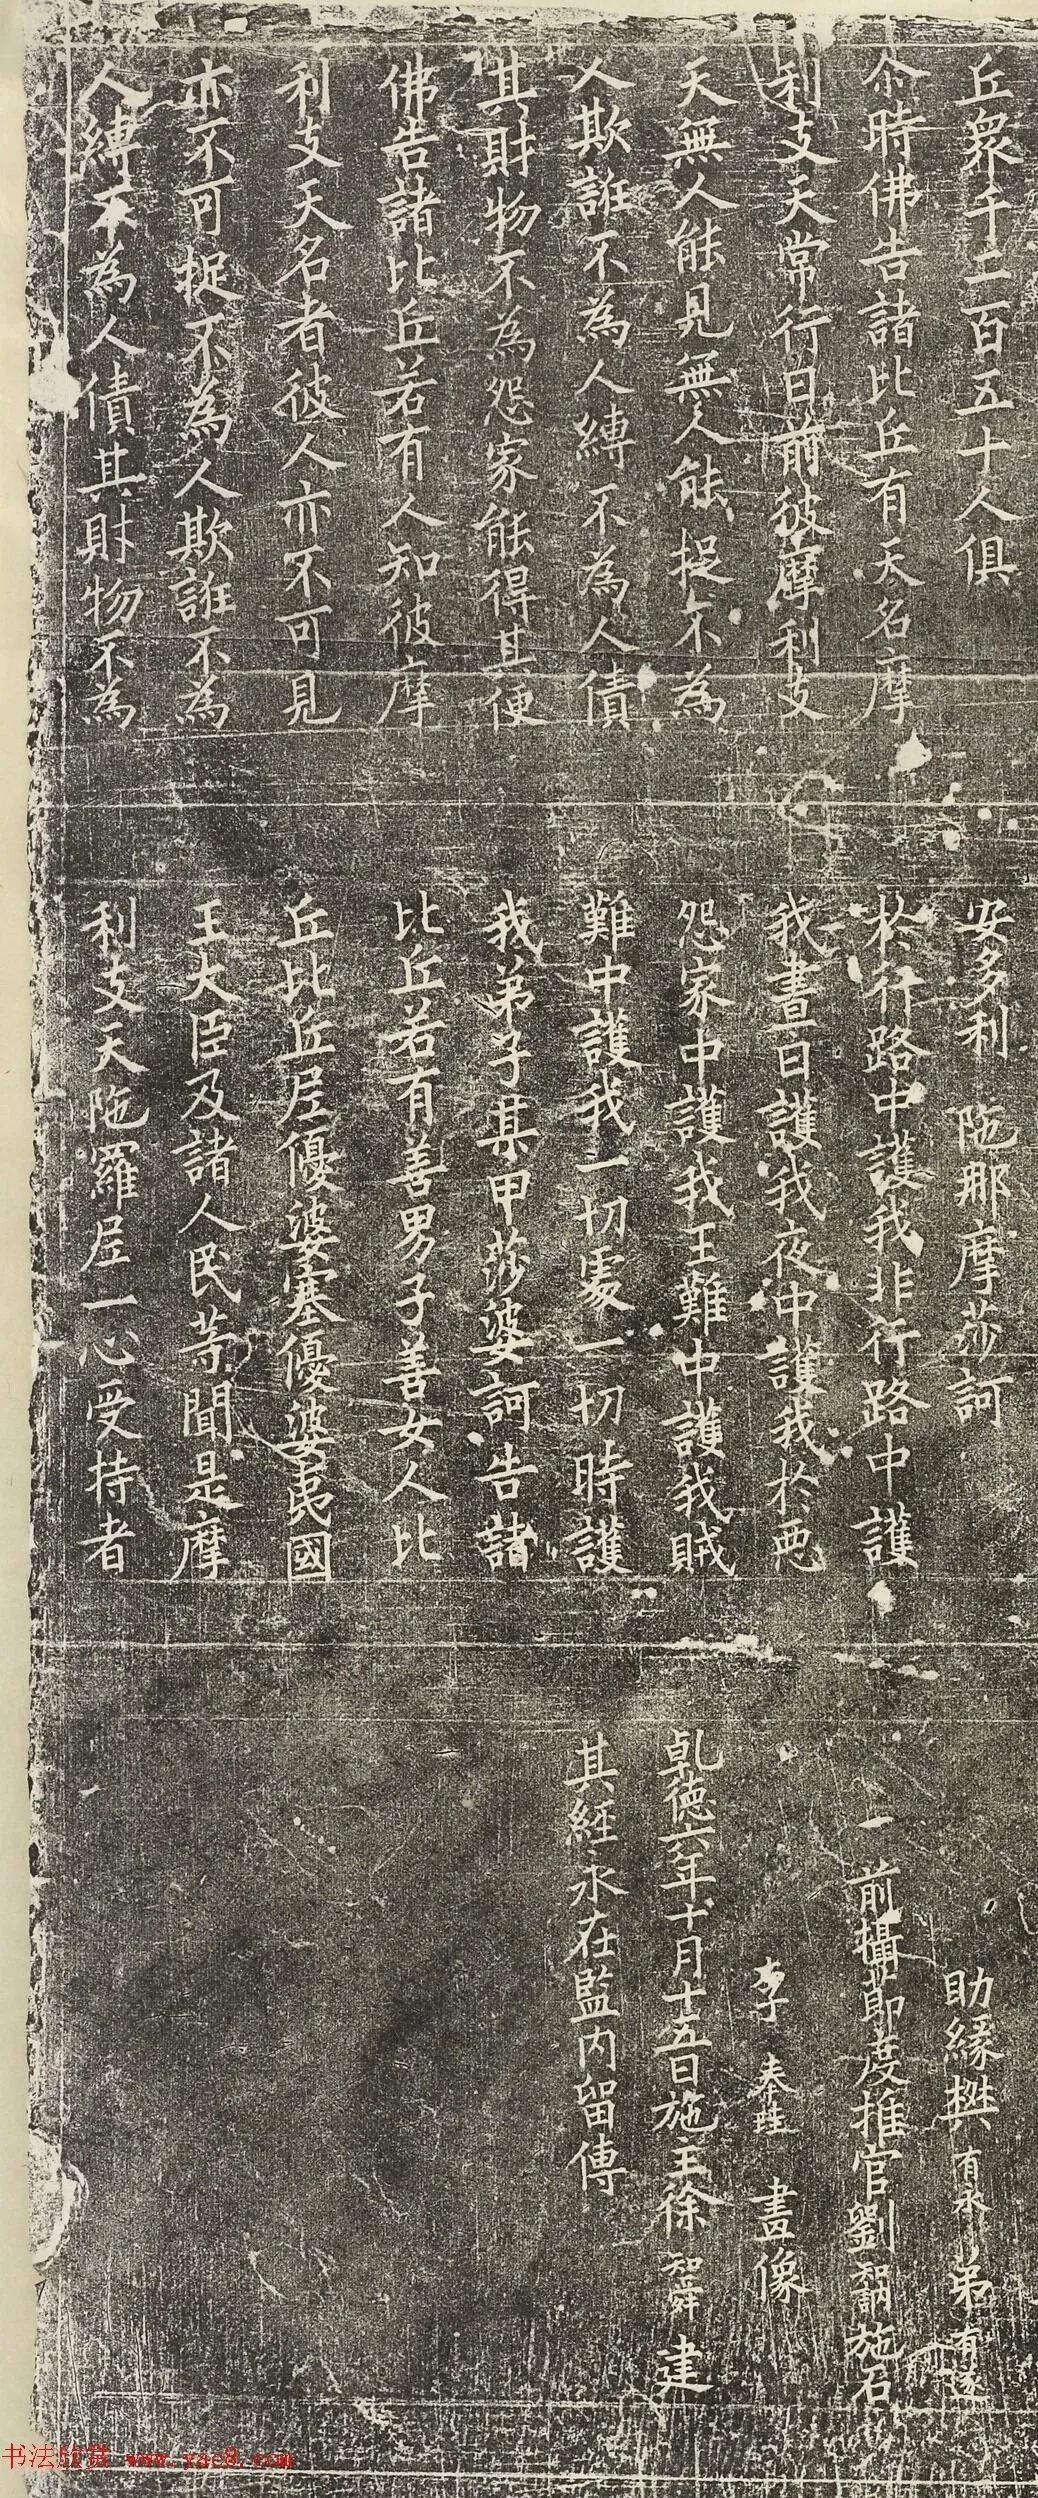 丘衆千二百五十人俱
尒時佛告諸比丘有天名摩
利支天常行日前彼摩利支
天無人能見無人能捉不為
人欺誑不為人縛不為人債
其財物不為怨家能得其便
佛告諸比丘若有人知彼摩
利支天名者彼人亦不可見
亦不可捉不為人欺誑不為
人縛不為人債其財物不為
安多利 陁那摩莎訶
於行路中護我非行路中護
我晝日護我夜中護我於惡
怨家中護我王難中護我賊
難中護我一切處一切時護
我弟子某甲莎婆訶告諸
比丘若有善男子善女人比
丘比丘尼優婆塞優婆夷國
王大臣及諸人民等聞是摩
利支天陁羅尼一心受持者
助緣樊有永弟有遂
前攝節度推官劉知訥施石
李奉珪 畫像
乹德六年十月十五日施主徐知舜建
其經永在監内留傳
书法欣赏 www.yac8.com